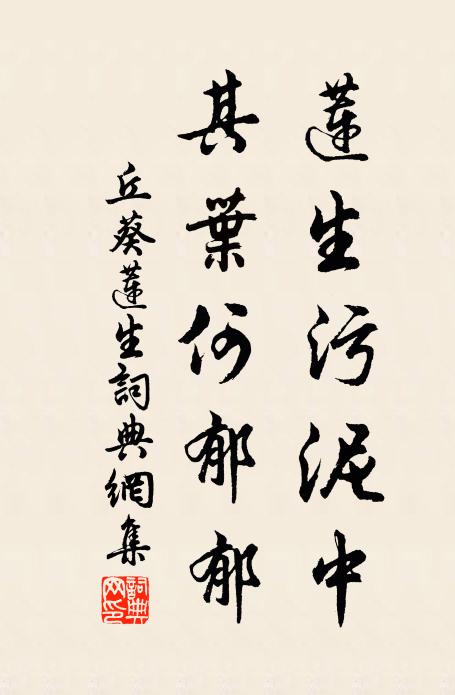 蓮生污泥中
其葉何郁郁
丘葵蓮生詞典網集
詞典网印